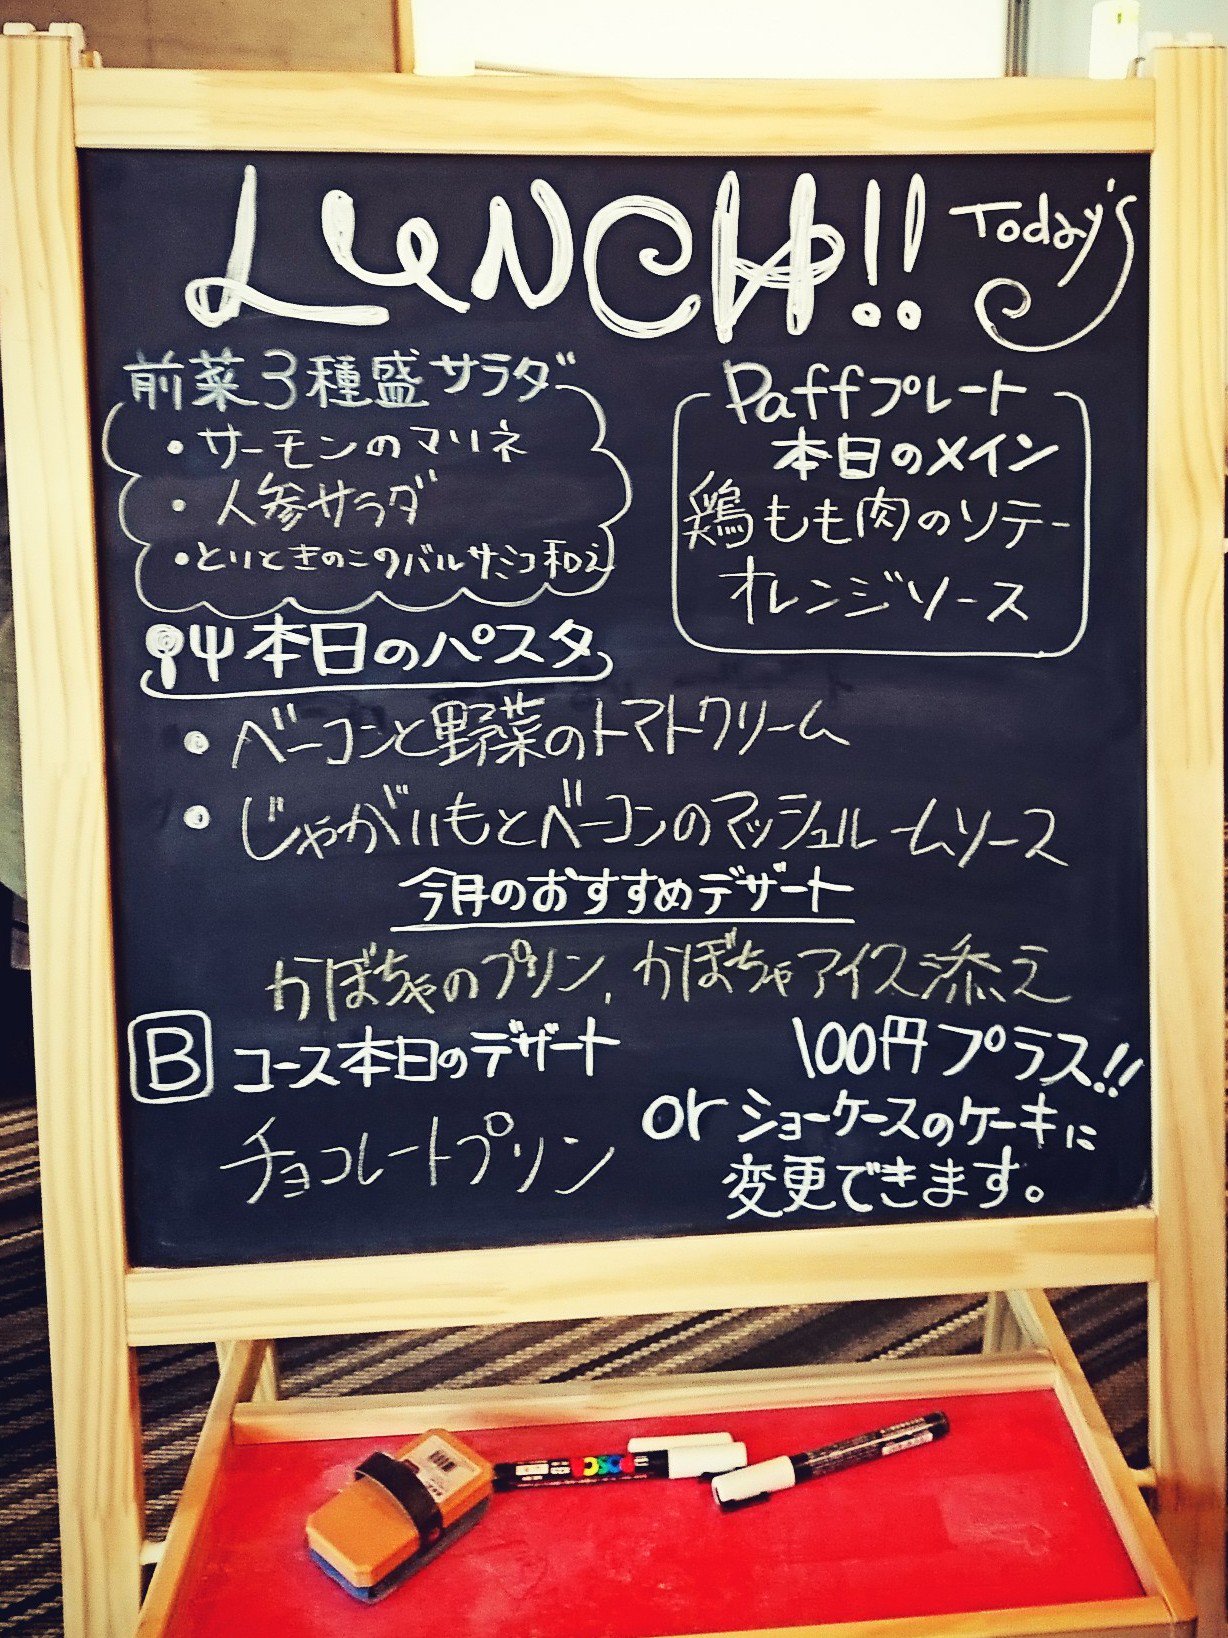 LUNCH!! Today's
前菜3種盛サラダ
・サーモンのマリネ
・人参サラダ
・とりときのこのバルサミコ和え
Paffプレート
本日のメイン
鶏もも肉のソテー
オレンジソース
本日のパスタ
・ベーコンと野菜のトマトクリーム
・じゃがいもとベーコンのマッシュルームソース
今月のおすすめデザート
かぼちゃのプリン、かぼちゃアイス添え
B コース本日のデザート
チョコレートプリン
100円プラス!!
or ショーケースのケーキに
変更できます。
POSCA